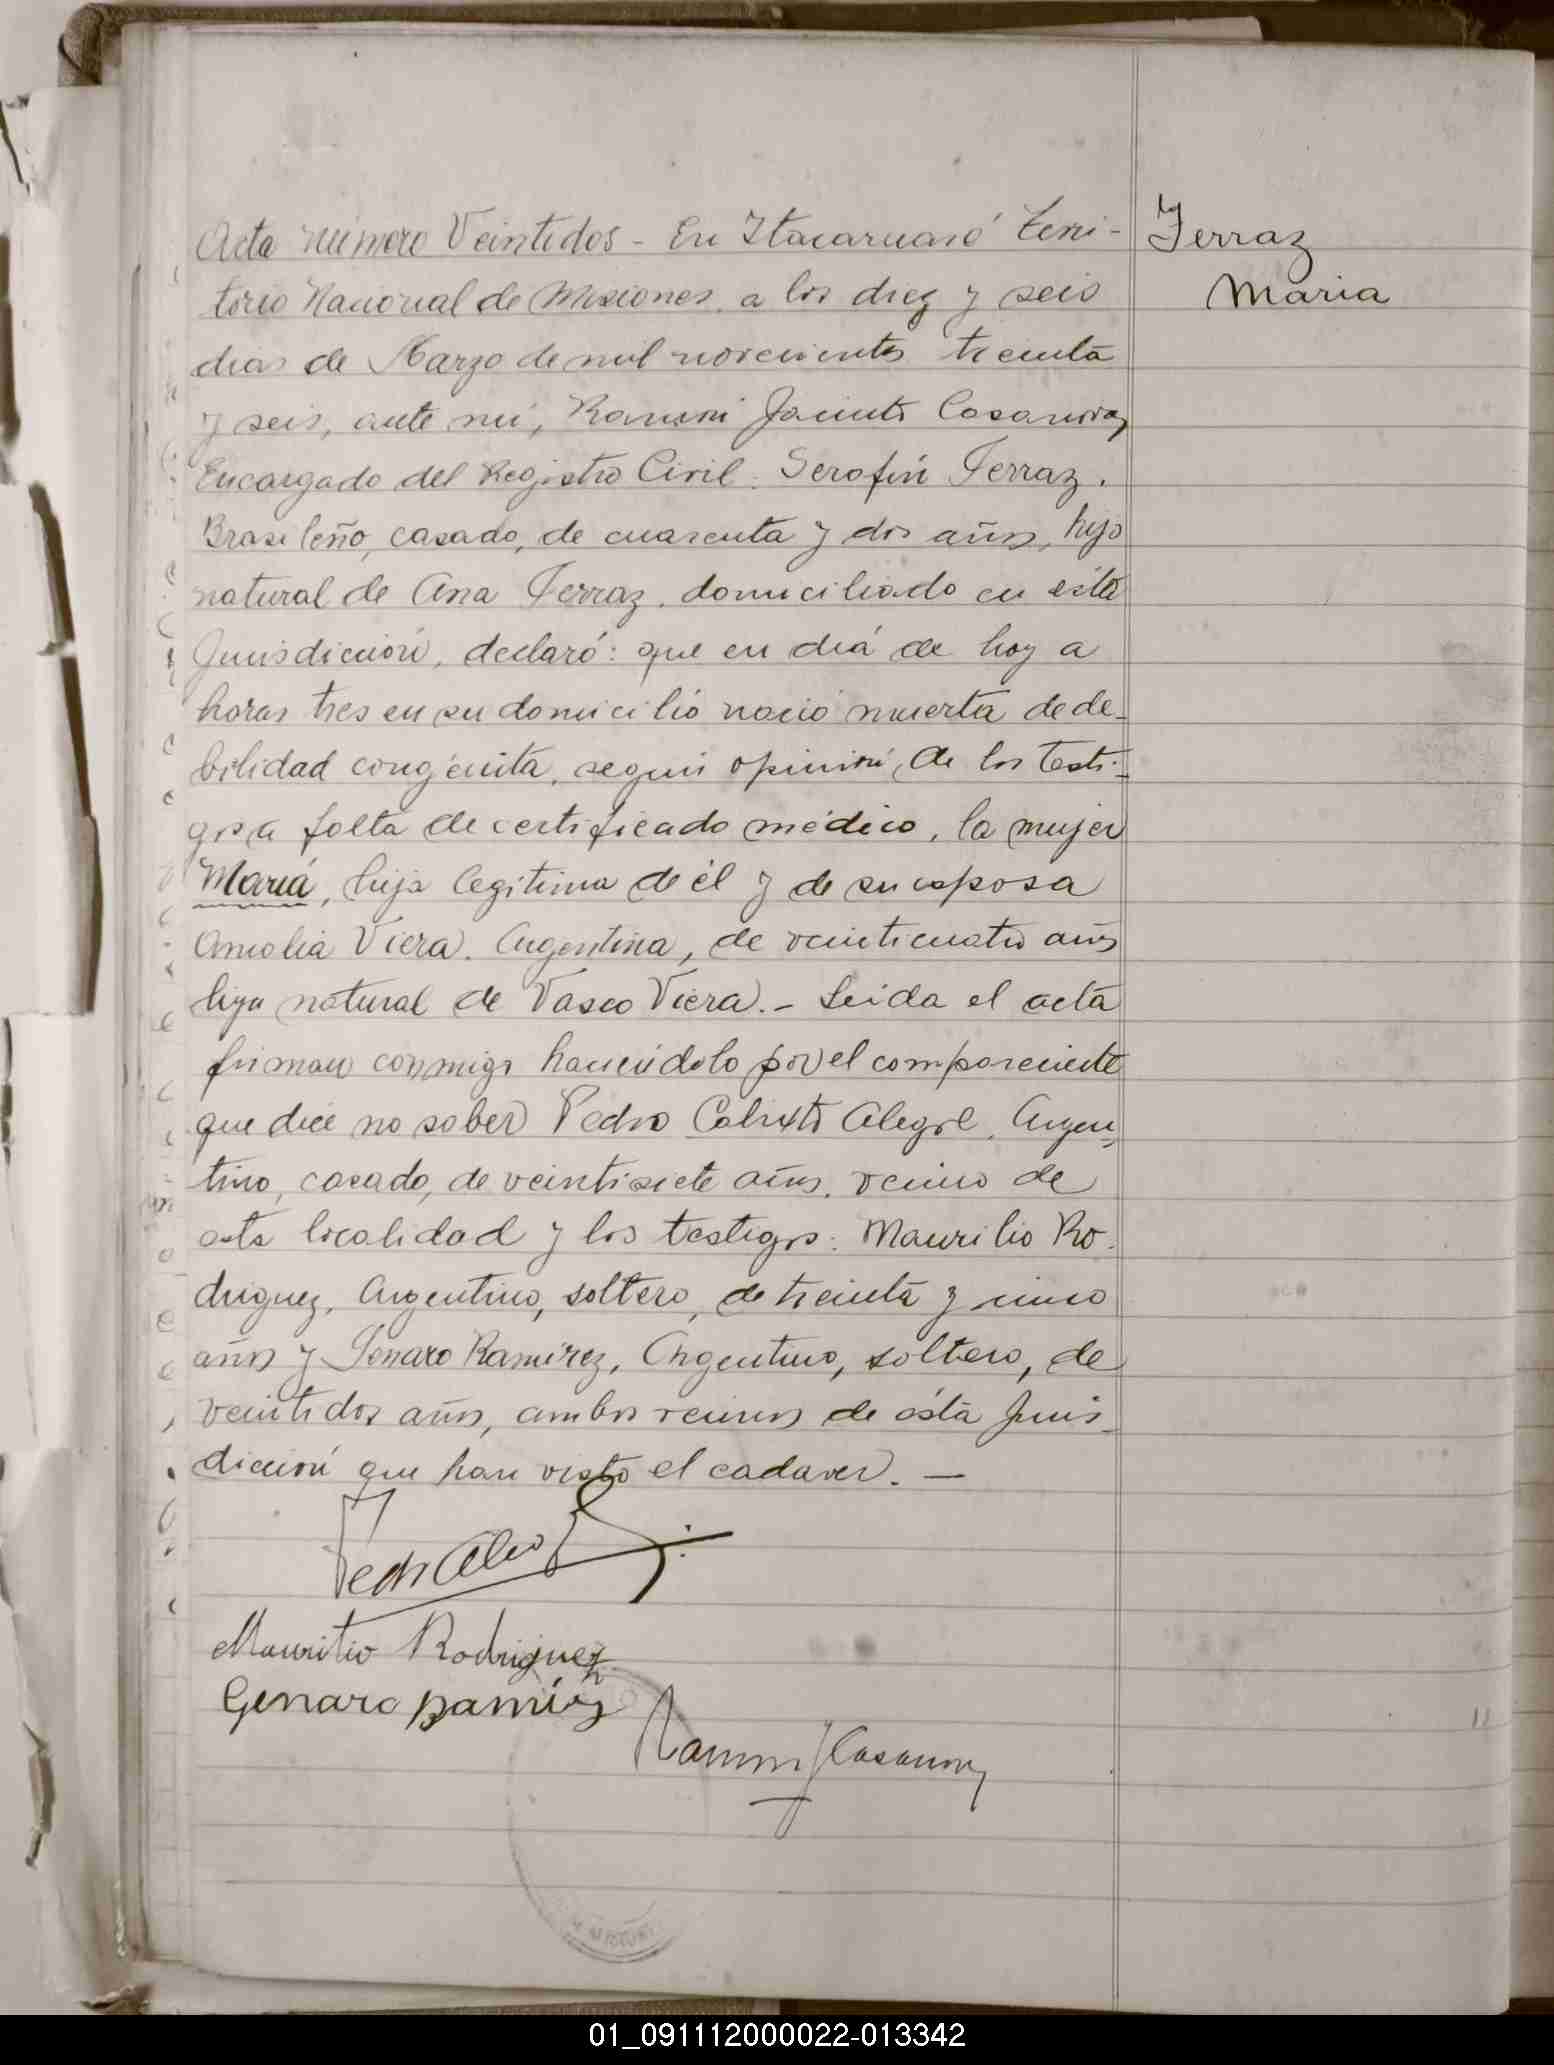 Acta número Veintidos - En Itacaruaré Terri-
torio Nacional de Misiones, a los diez y seis
dias de Marzo de mil novecientos treinta
y seis, ante mi, Ramón Jacinto Casanova,
Encargado del Registro Civil: Serafin Ferraz,
Brasileño, casado, de cuarenta y dos años, hijo
natural de Ana Ferraz, domiciliado en esta
Jurisdicción, declaró: que en diá de hoy a
horas tres en su domicilio nació muerta de de-
bilidad congénita, según opinión, de los testi-
gos a falta de certificado médico, la mujer
Mariá, hija legitima de él y de su esposa
Amalia Viera, Argentina, de veinticuatro años
hija natural de Vasco Viera. - Leida el acta
firman conmigo haciéndolo por el compareciente
que dice no saber Pedro Calixto Alegre, Argen-
tino, casado, de veintisiete años, vecino de
esta localidad y los testigos: Maurilio Ro-
driguez, Argentino, soltero, de treinta y cinco
años y Jenaro Ramirez, Argentino, soltero, de
veintidos años, ambos vecinos de ésta Juris-
dicción que han visto el cadaver. —
Maurilio Rodriguez
Genaro Ramirez
Ramon J Casanova
Ferraz
Maria
01_091112000022-013342